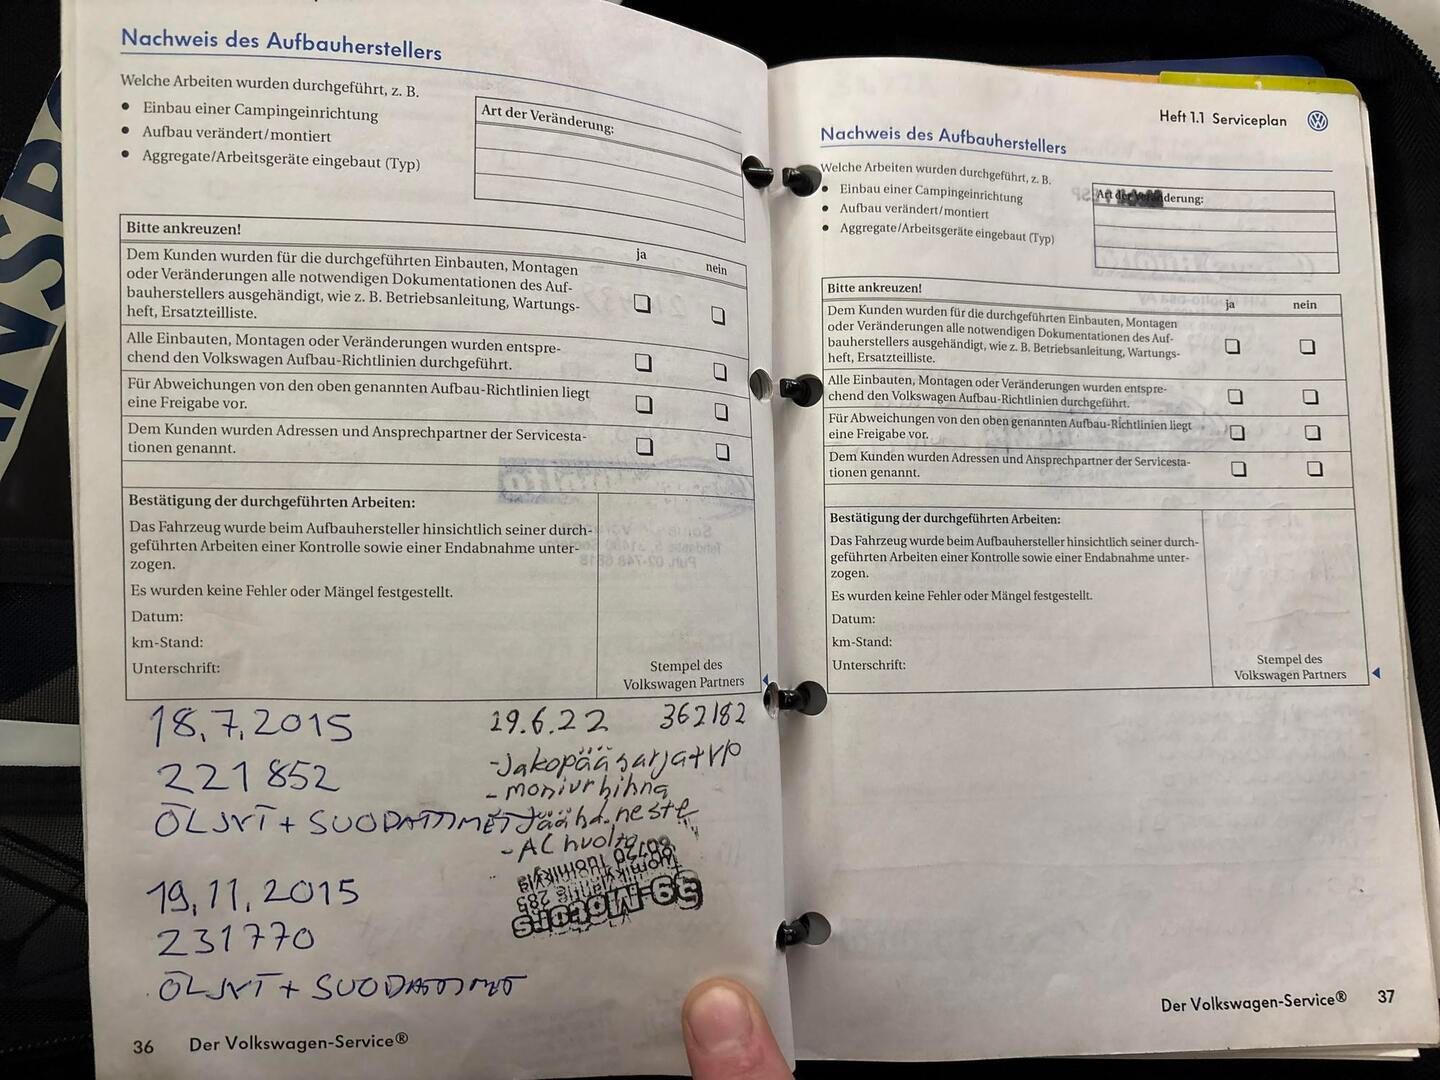 Nachweis des Aufbauherstellers
Welche Arbeiten wurden durchgeführt, z. B.
• Einbau einer Campingeinrichtung
• Aufbau verändert/montiert
• Aggregate/Arbeitsgeräte eingebaut (Typ)
Art der Veränderung:
Bitte ankreuzen!
ja nein
Dem Kunden wurden für die durchgeführten Einbauten, Montagen
oder Veränderungen alle notwendigen Dokumentationen des Auf-
bauherstellers ausgehändigt, wie z. B. Betriebsanleitung, Wartungs-
heft, Ersatzteilliste.
Alle Einbauten, Montagen oder Veränderungen wurden entspre-
chend den Volkswagen Aufbau-Richtlinien durchgeführt.
Für Abweichungen von den oben genannten Aufbau-Richtlinien liegt
eine Freigabe vor.
Dem Kunden wurden Adressen und Ansprechpartner der Servicesta-
tionen genannt.
Bestätigung der durchgeführten Arbeiten:
Das Fahrzeug wurde beim Aufbauhersteller hinsichtlich seiner durch-
geführten Arbeiten einer Kontrolle sowie einer Endabnahme unter-
zogen.
Es wurden keine Fehler oder Mängel festgestellt.
Datum:
km-Stand:
Unterschrift:
Stempel des
Volkswagen Partners
18.7.2015
221852
ÖLJYT + SUODATTIMET
19.11.2015
231770
ÖLJYT + SUODATTIMET
29.6.22 362182
-Jakopääsarja+VP
- moniurhihna
Jäähd.neste
- AC huolto
39-Motors
Tuomikyläntie 285
60720 Tuomikylä
36 Der Volkswagen-Service®
Heft 1.1 Serviceplan
Nachweis des Aufbauherstellers
Welche Arbeiten wurden durchgeführt, z. B.
• Einbau einer Campingeinrichtung
• Aufbau verändert/montiert
• Aggregate/Arbeitsgeräte eingebaut (Typ)
Art der Veränderung:
Bitte ankreuzen!
ja nein
Dem Kunden wurden für die durchgeführten Einbauten, Montagen
oder Veränderungen alle notwendigen Dokumentationen des Auf-
bauherstellers ausgehändigt, wie z. B. Betriebsanleitung, Wartungs-
heft, Ersatzteilliste.
Alle Einbauten, Montagen oder Veränderungen wurden entspre-
chend den Volkswagen Aufbau-Richtlinien durchgeführt.
Für Abweichungen von den oben genannten Aufbau-Richtlinien liegt
eine Freigabe vor.
Dem Kunden wurden Adressen und Ansprechpartner der Servicesta-
tionen genannt.
Bestätigung der durchgeführten Arbeiten:
Das Fahrzeug wurde beim Aufbauhersteller hinsichtlich seiner durch-
geführten Arbeiten einer Kontrolle sowie einer Endabnahme unter-
zogen.
Es wurden keine Fehler oder Mängel festgestellt.
Datum:
km-Stand:
Unterschrift:
Stempel des
Volkswagen Partners
Der Volkswagen-Service® 37